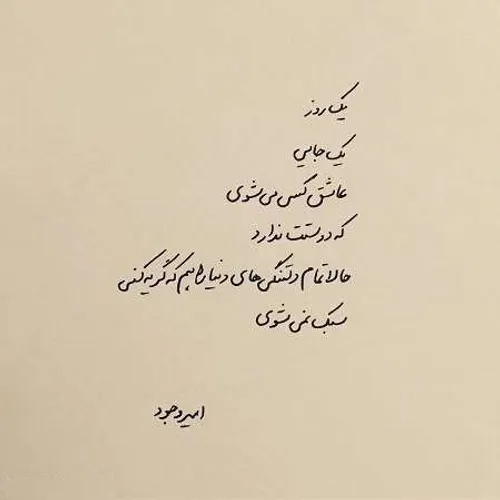 یک روز
یک جایی
عاشق کسی می‌شوی
که دوستت ندارد
حالا تمام دلتنگی‌های دنیا را هم که گریه کنی
سبک نمی‌شوی
امیر وجود